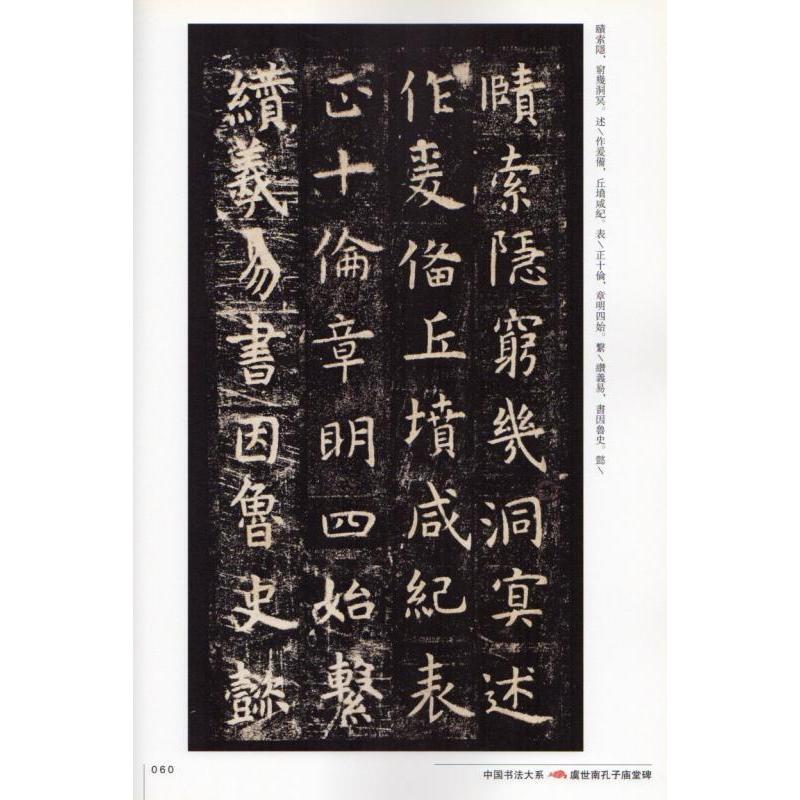 賾索隱窮幾洞冥述
作爰備丘墳咸紀表
正十倫章明四始繫
纘羲易書因魯史懿
賾索隱，窮幾洞冥。述＼作爰備，丘墳咸紀。表＼正十倫，章明四始。繫＼纘義易，書因魯史。懿＼
060
中国书法大系 虞世南孔子庙堂碑